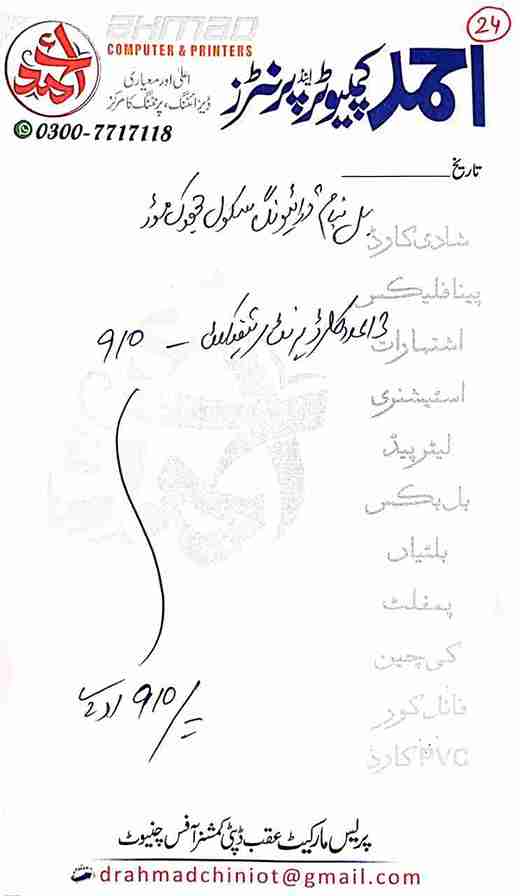 24
AHMAD
COMPUTER & PRINTERS
احمد
احمد کمپیوٹر اینڈ پرنٹرز
اعلیٰ اور معیاری
ڈیزائننگ، پرنٹنگ کا مرکز
0300-7717118
تاریخ
بل بنام ڈرائیونگ سکول
شادی کارڈ
پینا فلیکس
910 -
اشتہارات
اسٹیشنری
لیٹر پیڈ
بل بکس
بلٹیاں
پمفلٹ
کی چین
910/=
فائل کور
PVC کارڈ
پریس مارکیٹ عقب ڈپٹی کمشنر آفس چنیوٹ
drahmadchiniot@gmail.com